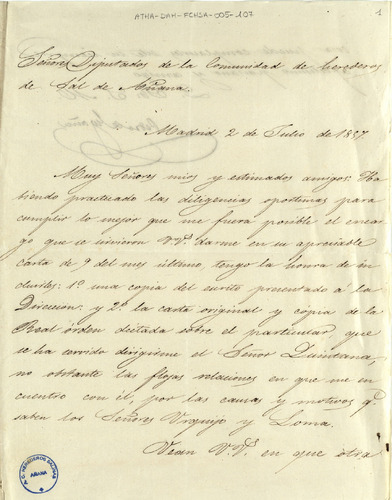 ATHA-DAH-FCHSA-005-107
1
Señores Diputados de la Comunidad de herederos
de Sal de Añana.
Madrid 2 de Julio de 1887
Muy Señores mios y estimados amigos: Ha-
biendo practicado las diligencias oportunas para
cumplir lo mejor que me fuera posible el encar-
go que se sirvieron VV. darme en su apreciable
carta de 9 del mes último, tengo la honra de in-
cluirles: 1º una copia del escrito presentado á la
Direccion: y 2º la carta original y copia de la
Real órden dictada sobre el particular que
se ha servido dirigirme el Señor Quintana,
no obstante las flojas relaciones en que me en-
cuentro con él, por las causas y motivos q.
saben los Señores Urquijo y Loma.
Vean V.V. en que otra
A.C. HEREDEROS SALINAS
AÑANA